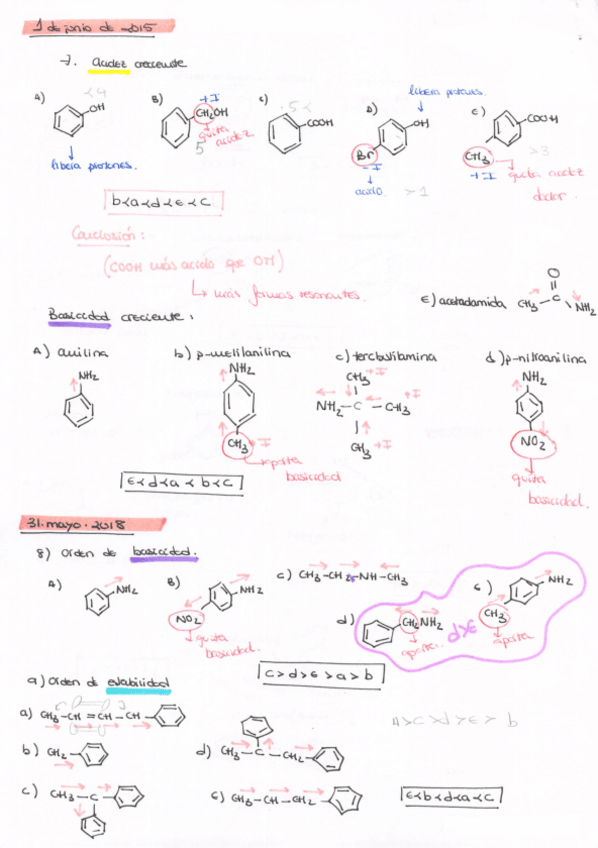 1 de junio de 2015
7. Acidez creciente
A) <4
OH
libera protones.
B) +I
CH2OH
quita acidez
5
c) 5<
COOH
D) libera protones.
OH
Br
-I
ácido
>1
E) COOH
>3
CH3
+I
quita acidez
b<a<d<E<C
Conclusión:
(COOH más ácido que OH)
↳ más formas resonantes.
E) acetadamida
O
CH3 - C
NH2
Basicidad creciente:
A) anilina
NH2
b) p-metilanilina
NH2
CH3 +I
aporta basicidad
c) tercbutilamina
CH3 +I
NH2 - C - CH3 +I
CH3 +I
d) p-nitroanilina
NH2
NO2
quita basicidad.
E<d<a<b<c
31.mayo.2018
8) Orden de basicidad.
A) NH2
B) NH2
NO2
quita basicidad.
c) CH3-CH2-NH-CH3
d) CH2NH2
aporta.
d>E
E) NH2
CH3
aporta
c>d>E>a>b
9) Orden de estabilidad
a) CH3-CH=CH-CH
A>C>d>E>b
b) CH2
d) CH3-C-CH2
c) CH3-C
E) CH3-CH-CH2
E<b<d<a<C